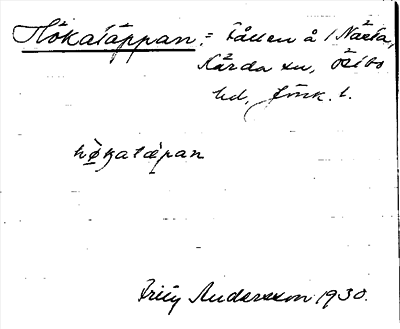 Hökatäppan: = Fållen å 1 Nästa,
Kärda sn, Östbo
hd, Jönk. l.
hø̀katæpan
Frity Andersson 1930.